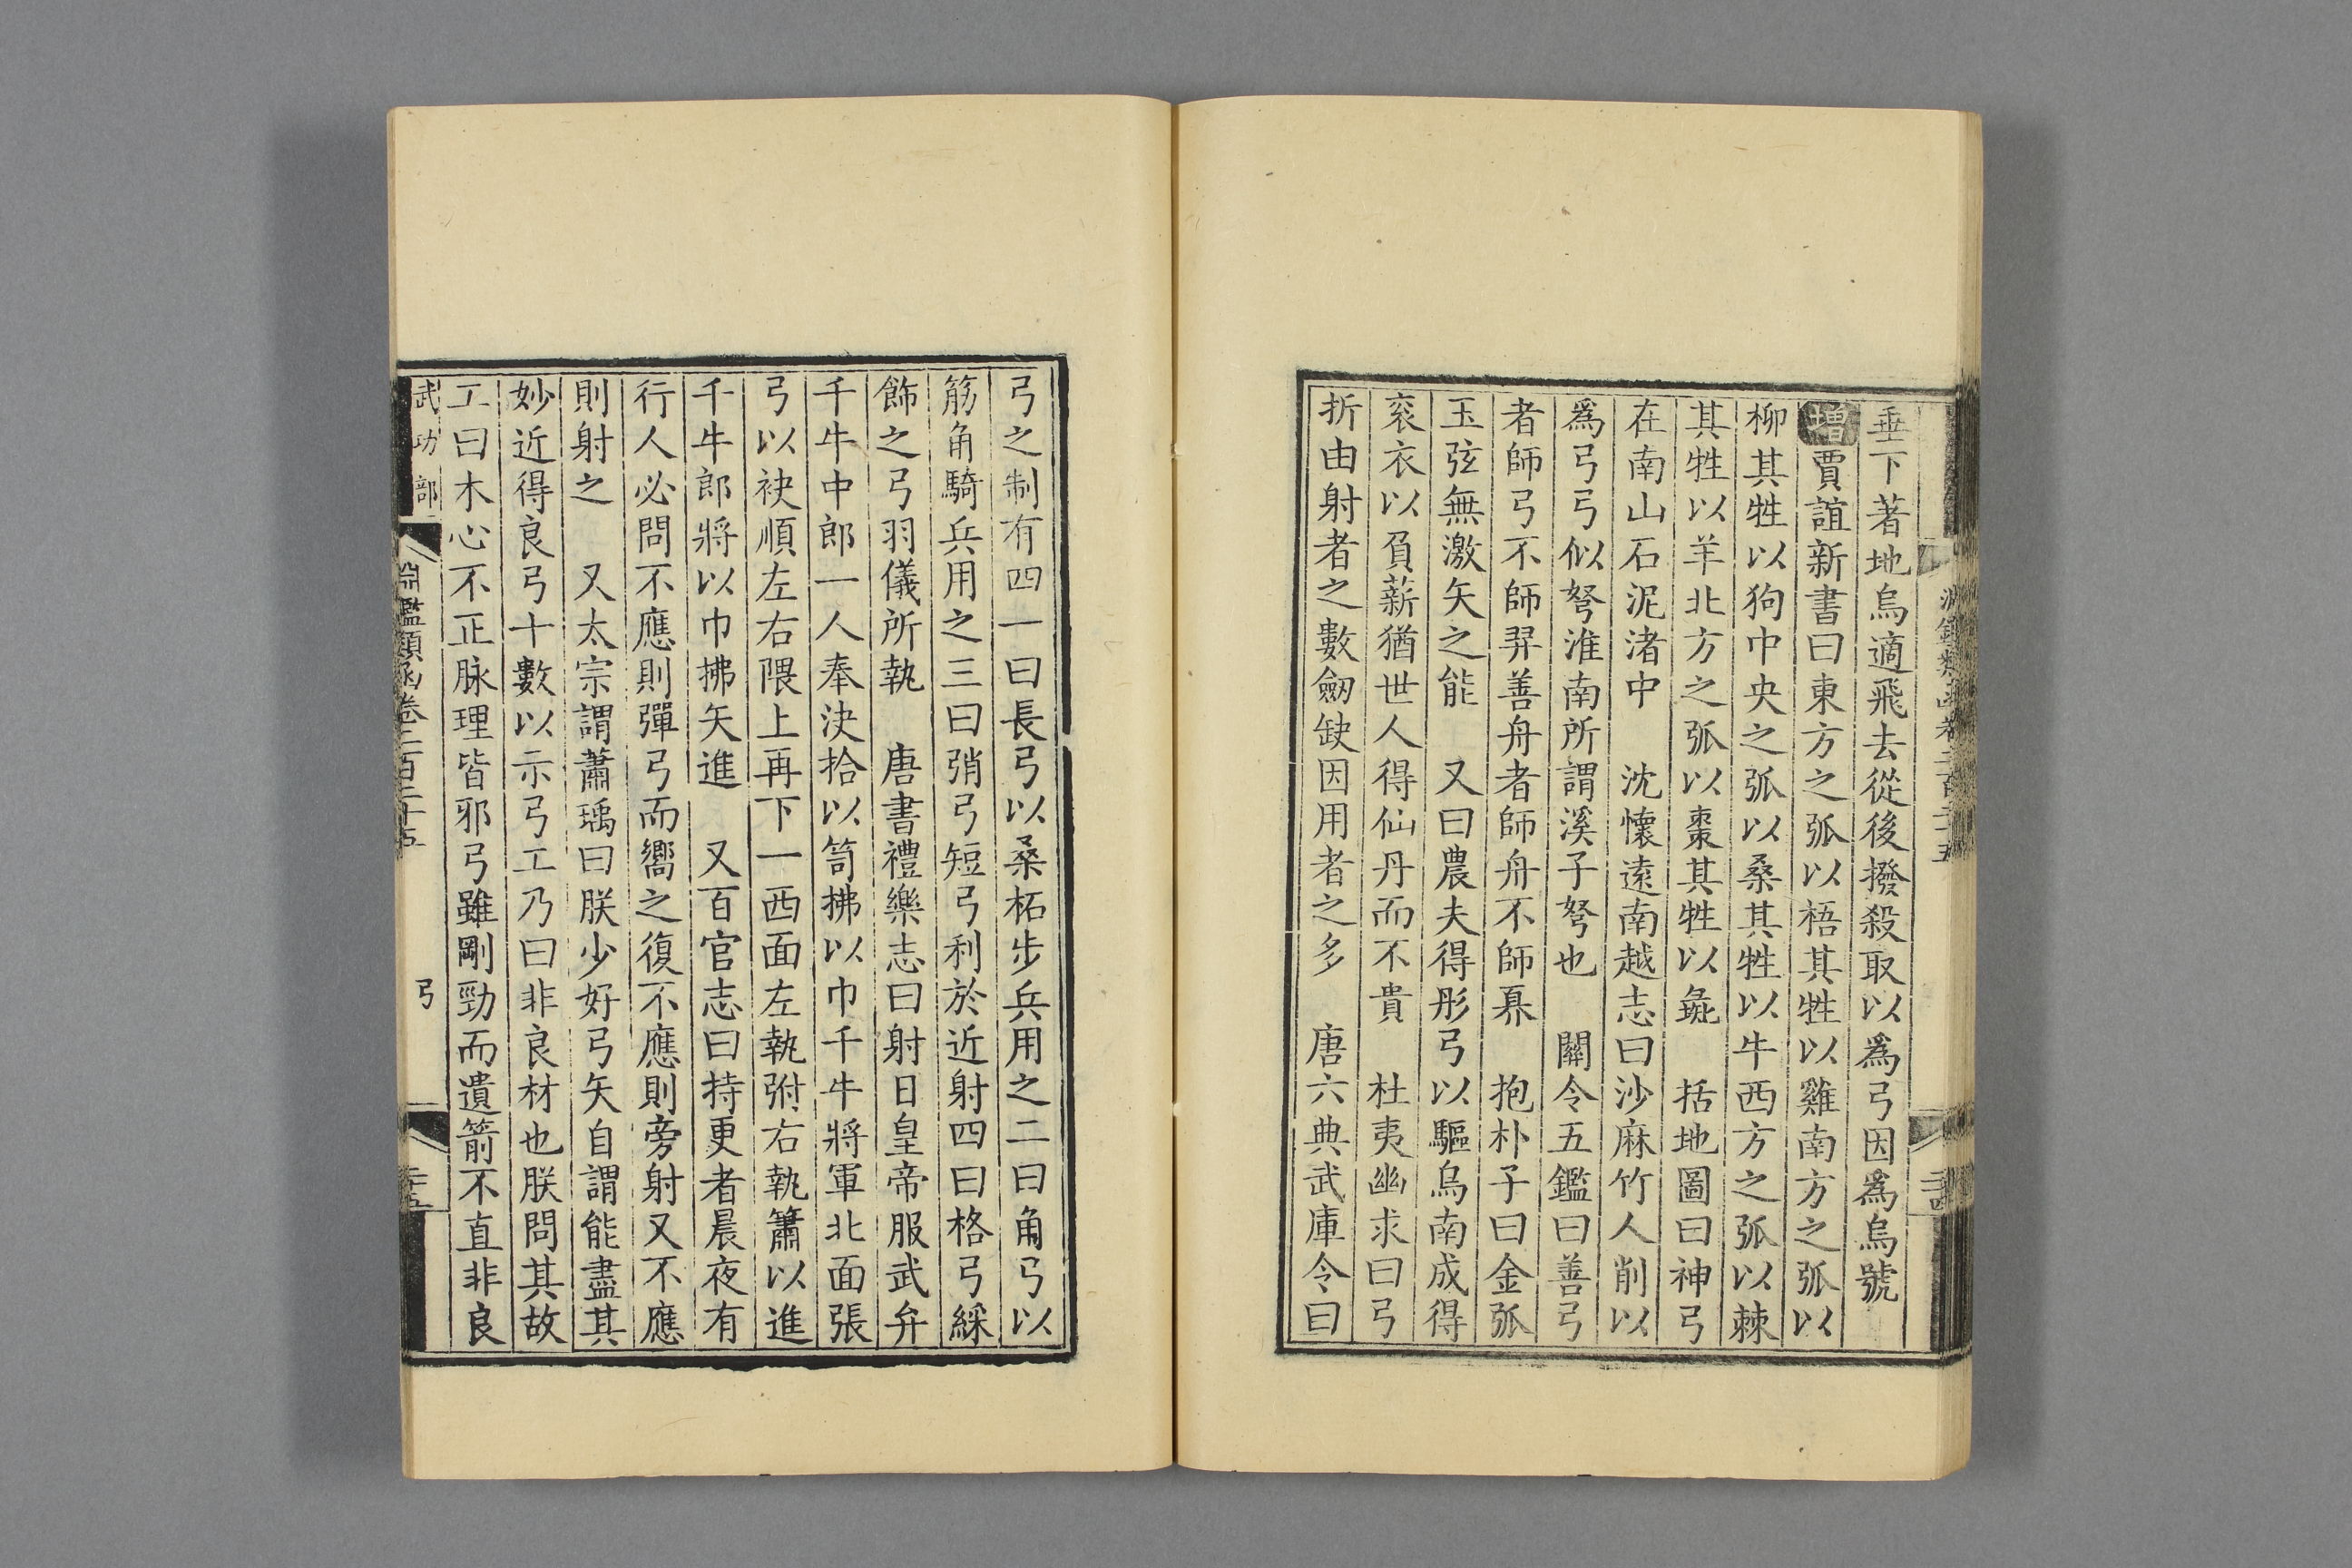 垂下著地烏適飛去從後撥殺取以爲弓因爲烏號
增賈誼新書曰東方之弧以梧其牲以雞南方之弧以
柳其牲以狗巾央之弧以桑其牲以牛西方之弧以棘
其牲以羊北方之弧以棗其牲以彘 括地圖曰神弓
在南山石泥渚中 沈懷遠南越志曰沙麻竹人削以
爲弓弓似弩淮南所謂溪子弩也 關令五鑑曰善弓
者師弓不師羿善舟者師舟不師奡 抱朴子曰金弧
玉弦無激矢之能 又曰農夫得彤弓以驅烏南成得
衮衣以負薪猶世人得仙丹而不貴 杜夷幽求曰弓
折由射者之數劒缺因用者之多 唐六典武庫令曰
弓之制有四一曰長弓以桑柘步兵用之二曰角弓以
筋角騎兵用之三曰弰弓短弓利於近射四曰格弓綵
飾之弓羽儀所執 唐書禮樂志曰射日皇帝服武弁
千牛中郎一人奉決拾以笥拂以巾千牛將軍北面張
弓以袂順左右隈上再下一西面左執弣右執簫以進
千牛郎將以巾拂矢進 又百官志曰持更者晨夜有
行人必問不應則彈弓而嚮之復不應則旁射又不應
則射之 又太宗謂蕭瑀曰朕少好弓矢自謂能盡其
妙近得良弓十數以示弓工乃曰非良材也朕問其故
工曰木心不正脉理皆邪弓雖剛勁而遺箭不直非良
武功部 淵鑑類函卷二百二十五 弓 二十五